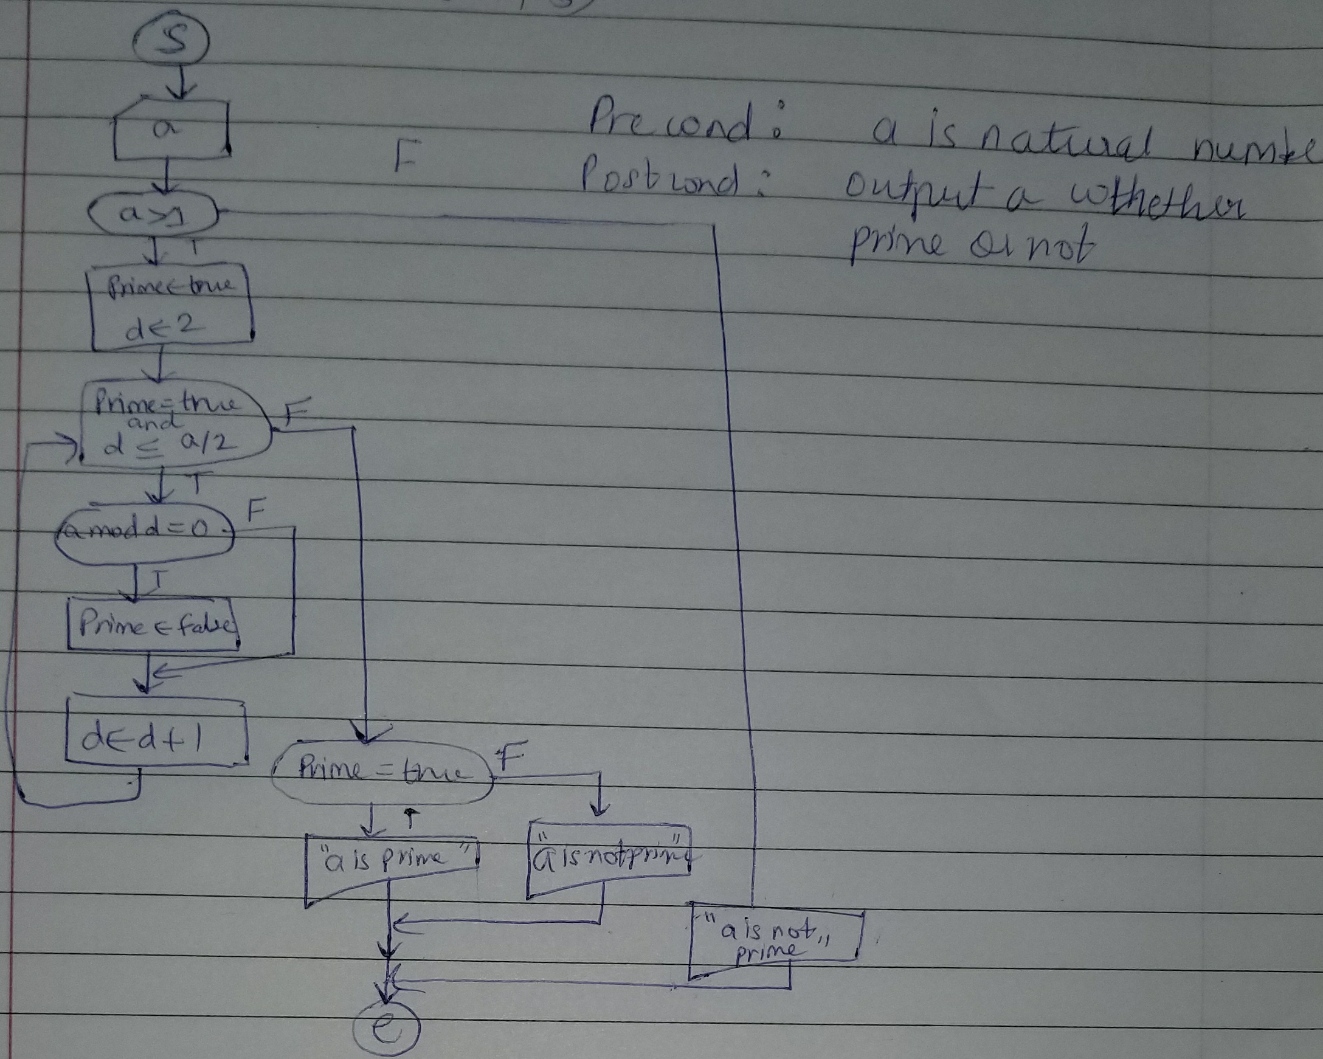 S
a
Precond: a is natural numbe
F
Postcond: output a whether
a>1
prime or not
T
Prime←true
d←2
Prime=true
and
d ≤ a/2
F
T
a mod d=0
F
T
Prime←false
d←d+1
Prime=true
F
T
"a is prime"
"a is not prim"
"a is not"
prime
e